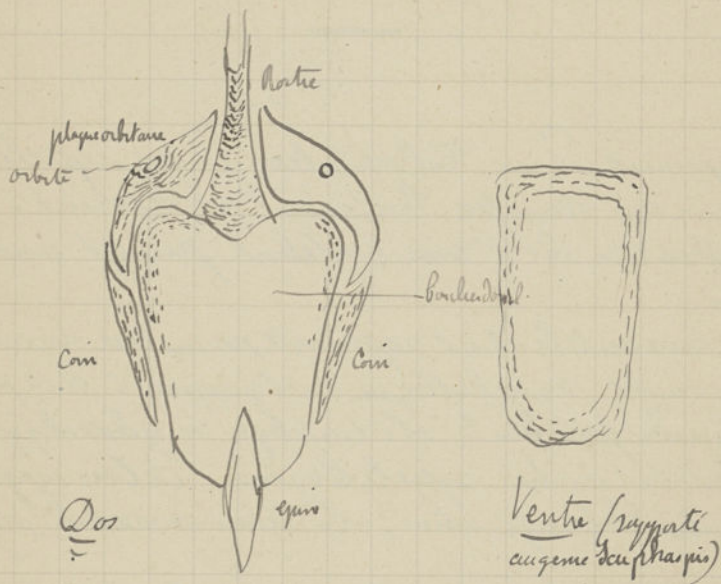 Rostre
plaque orbitaire
orbite
bouclier dorsal
Coin
Coin
epine
Dos
Ventre (rapporté
au genre Scaphaspis)